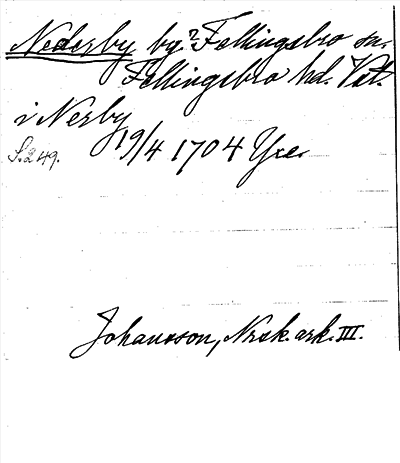 Nederby by? Fellingsbro sn.
Fellingsbro hd. Vstm.
i Nerby
19/4 1704 Yxe
S. 249.
Johansson, Norsk. ark. III.